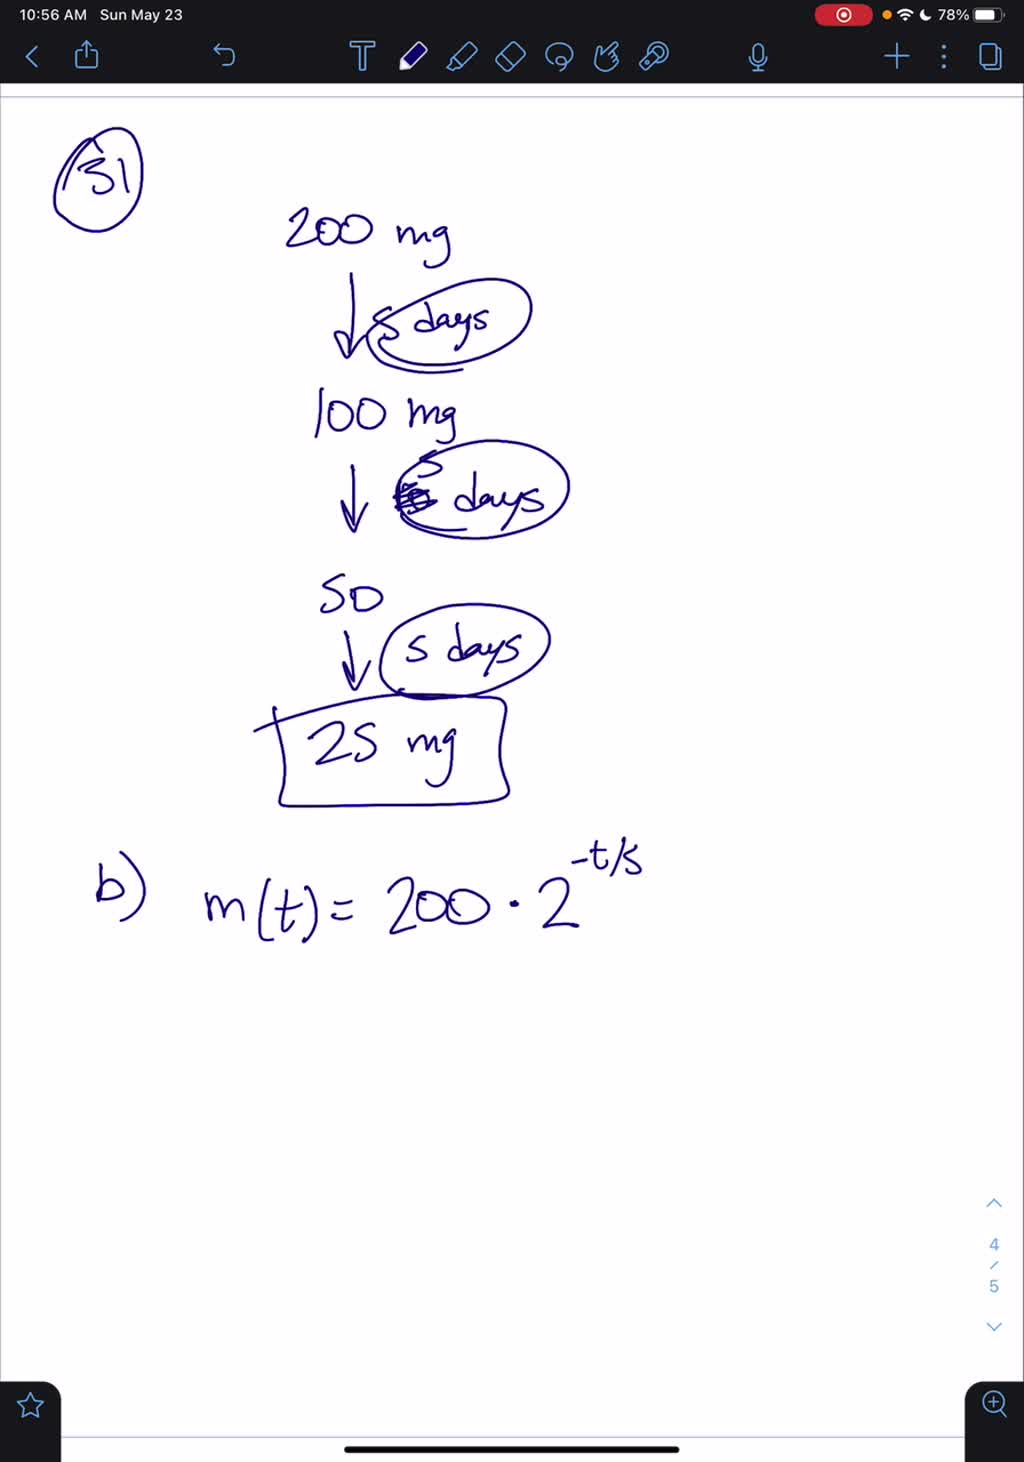 10:56 AM Sun May 23 78%
T
131
200 mg
5 days
100 mg
5 days
50
5 days
25 mg
b) m(t) = 200 · 2^-t/5
4
/
5